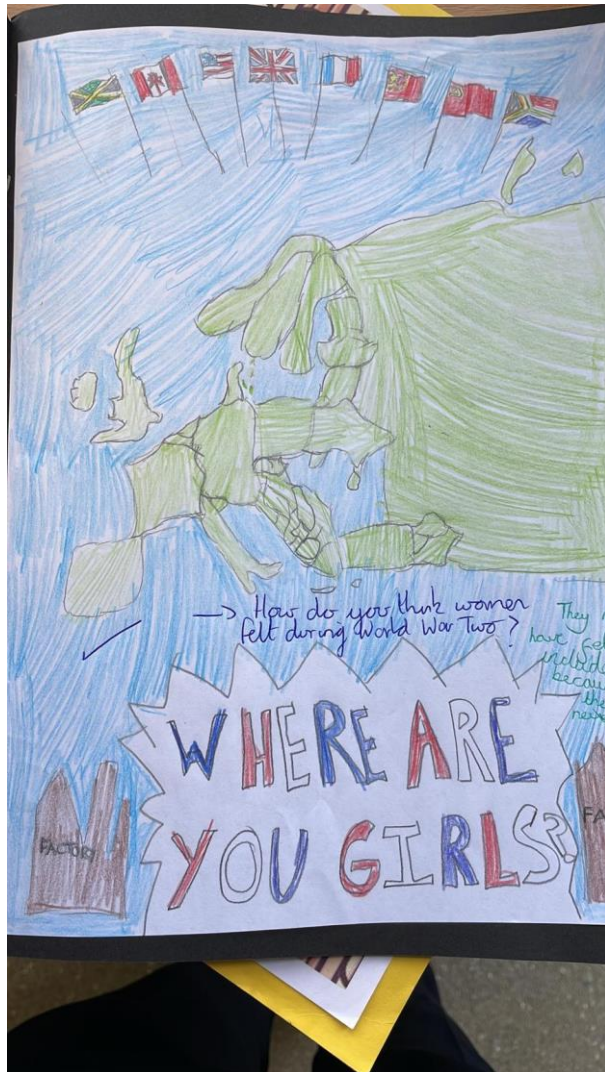 → How do you think women
felt during World War Two?
They
have
because
WHERE ARE
YOU GIRLS?
FACTORY
FA